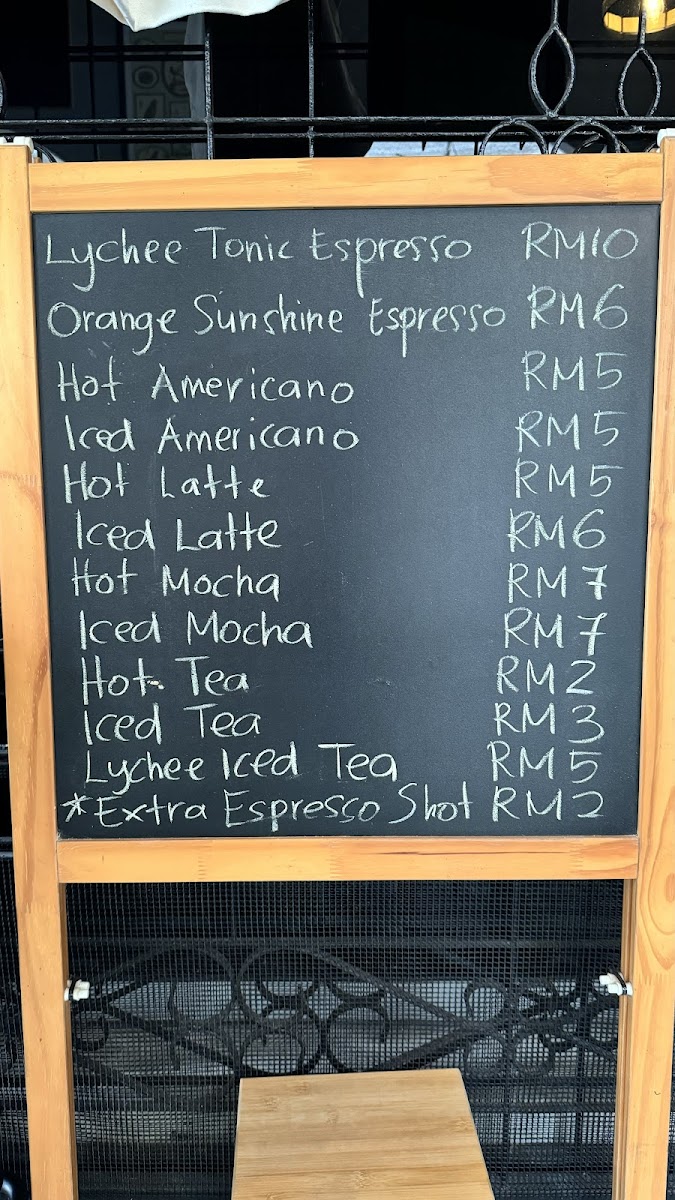 Lychee Tonic Espresso RM10
Orange Sunshine Espresso RM6
Hot Americano RM5
Iced Americano RM5
Hot Latte RM5
Iced Latte RM6
Hot Mocha RM7
Iced Mocha RM7
Hot Tea RM2
Iced Tea RM3
Lychee Iced Tea RM5
*Extra Espresso Shot RM2